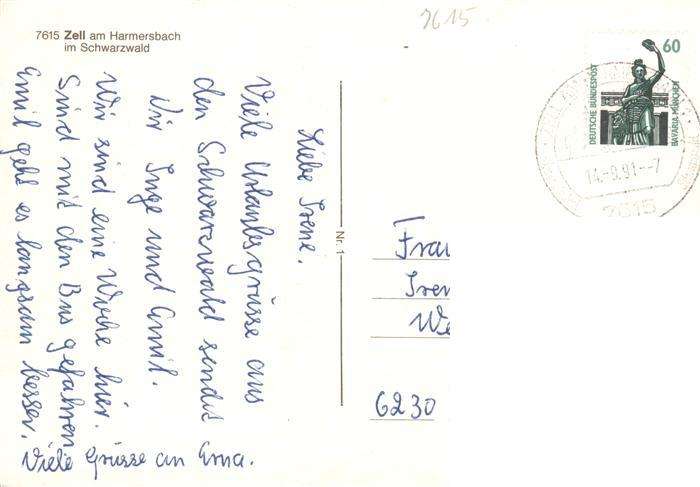 7615 Zell am Harmersbach
im Schwarzwald
7615
Liebe Irene.
Viele Urlaubsgrüsse aus
den Schwarzwald sendet
Dir Inge und Emil.
Wir sind eine Woche hier.
Sind mit den Bus gefahren
Emil geht es langsam besser.
Viele Grüsse an Erna.
Nr. 1
60
DEUTSCHE BUNDESPOST
BAVARIA MÜNCHEN
14.-8.91--7
7615
Frau
Iren
We
6230